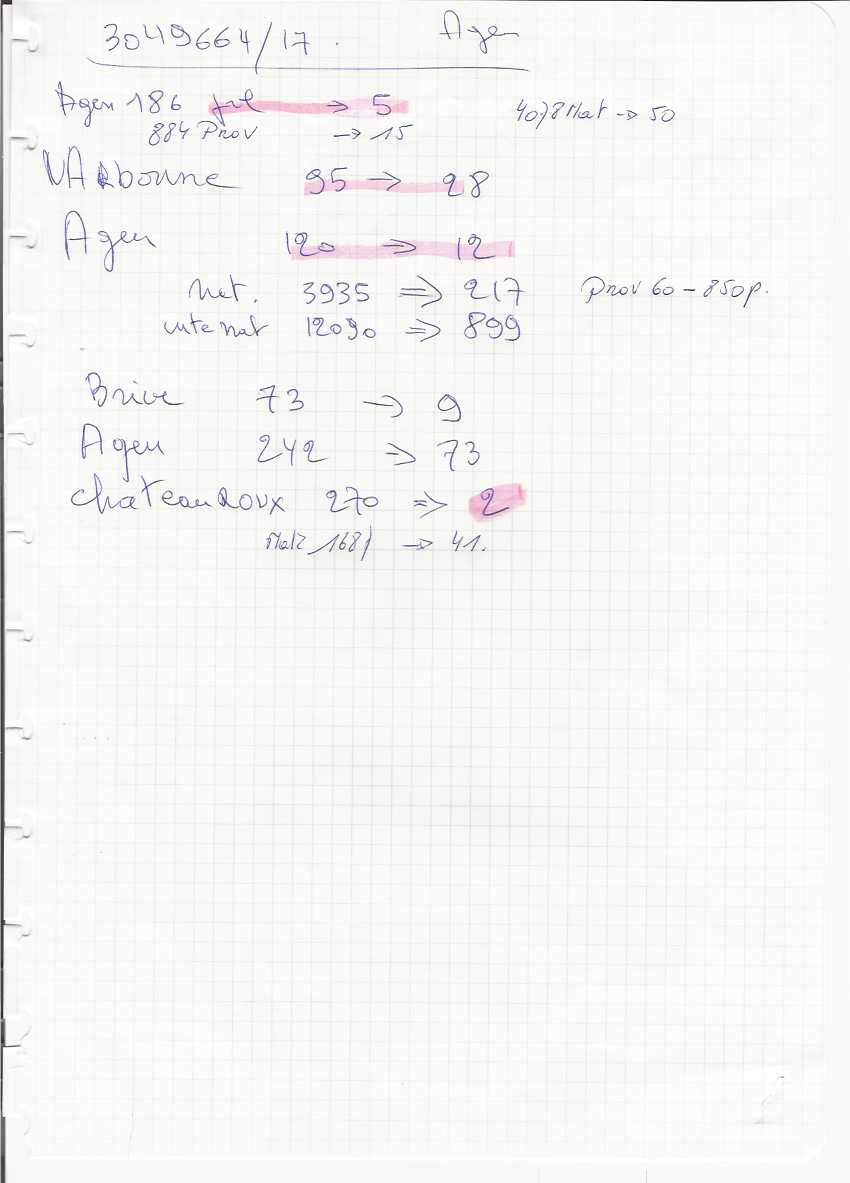 3049664/17. Agen
Agen 186 jvl → 5
4078 Nat → 50
884 Prov → 15
NARbonne 95 → 28
Agen 120 ⇒ 12
Nat. 3935 ⇒ 217 Prov 60 - 850p.
inte nat 12090 ⇒ 899
Brive 73 → 9
Agen 242 ⇒ 73
chateauRoux 270 ⇒ 2
1681 → 41.